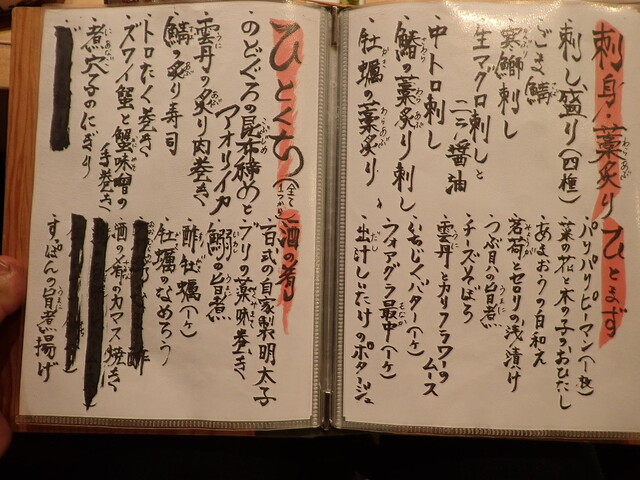 刺身・藁炙り
刺し盛り(四種)
ごま鯖
寒鰤刺し
生マグロ刺しと
ニラ醤油
中トロ刺し
鰆の藁炙り刺し
牡蠣の藁炙り
ひとまず
パリパリピーマン(一枚)
菜の花と木の子のおひたし
あまおうの白和え
茗荷とセロリの浅漬け
つぶ貝の旨煮
チーズそぼろ
雲丹とカリフラワーの
ムース
いちじくバター(一ヶ)
フォアグラ最中(一ヶ)
出汁しいたけのポタージュ
ひとくち(全て1つから)
のどぐろの昆布締めと
アオリイカ
雲丹の炙り肉巻き
鯖の炙り寿司
トロたく巻き
ズワイ蟹と蟹味噌の
手巻き
煮穴子のにぎり
酒の肴
百式の自家製明太子
ブリの薬味巻き
鰯の旨煮
酢牡蠣(一ヶ)
牡蠣のなめろう
酢
酒の都のカマス焼き
すっぽんの旨煮揚げ